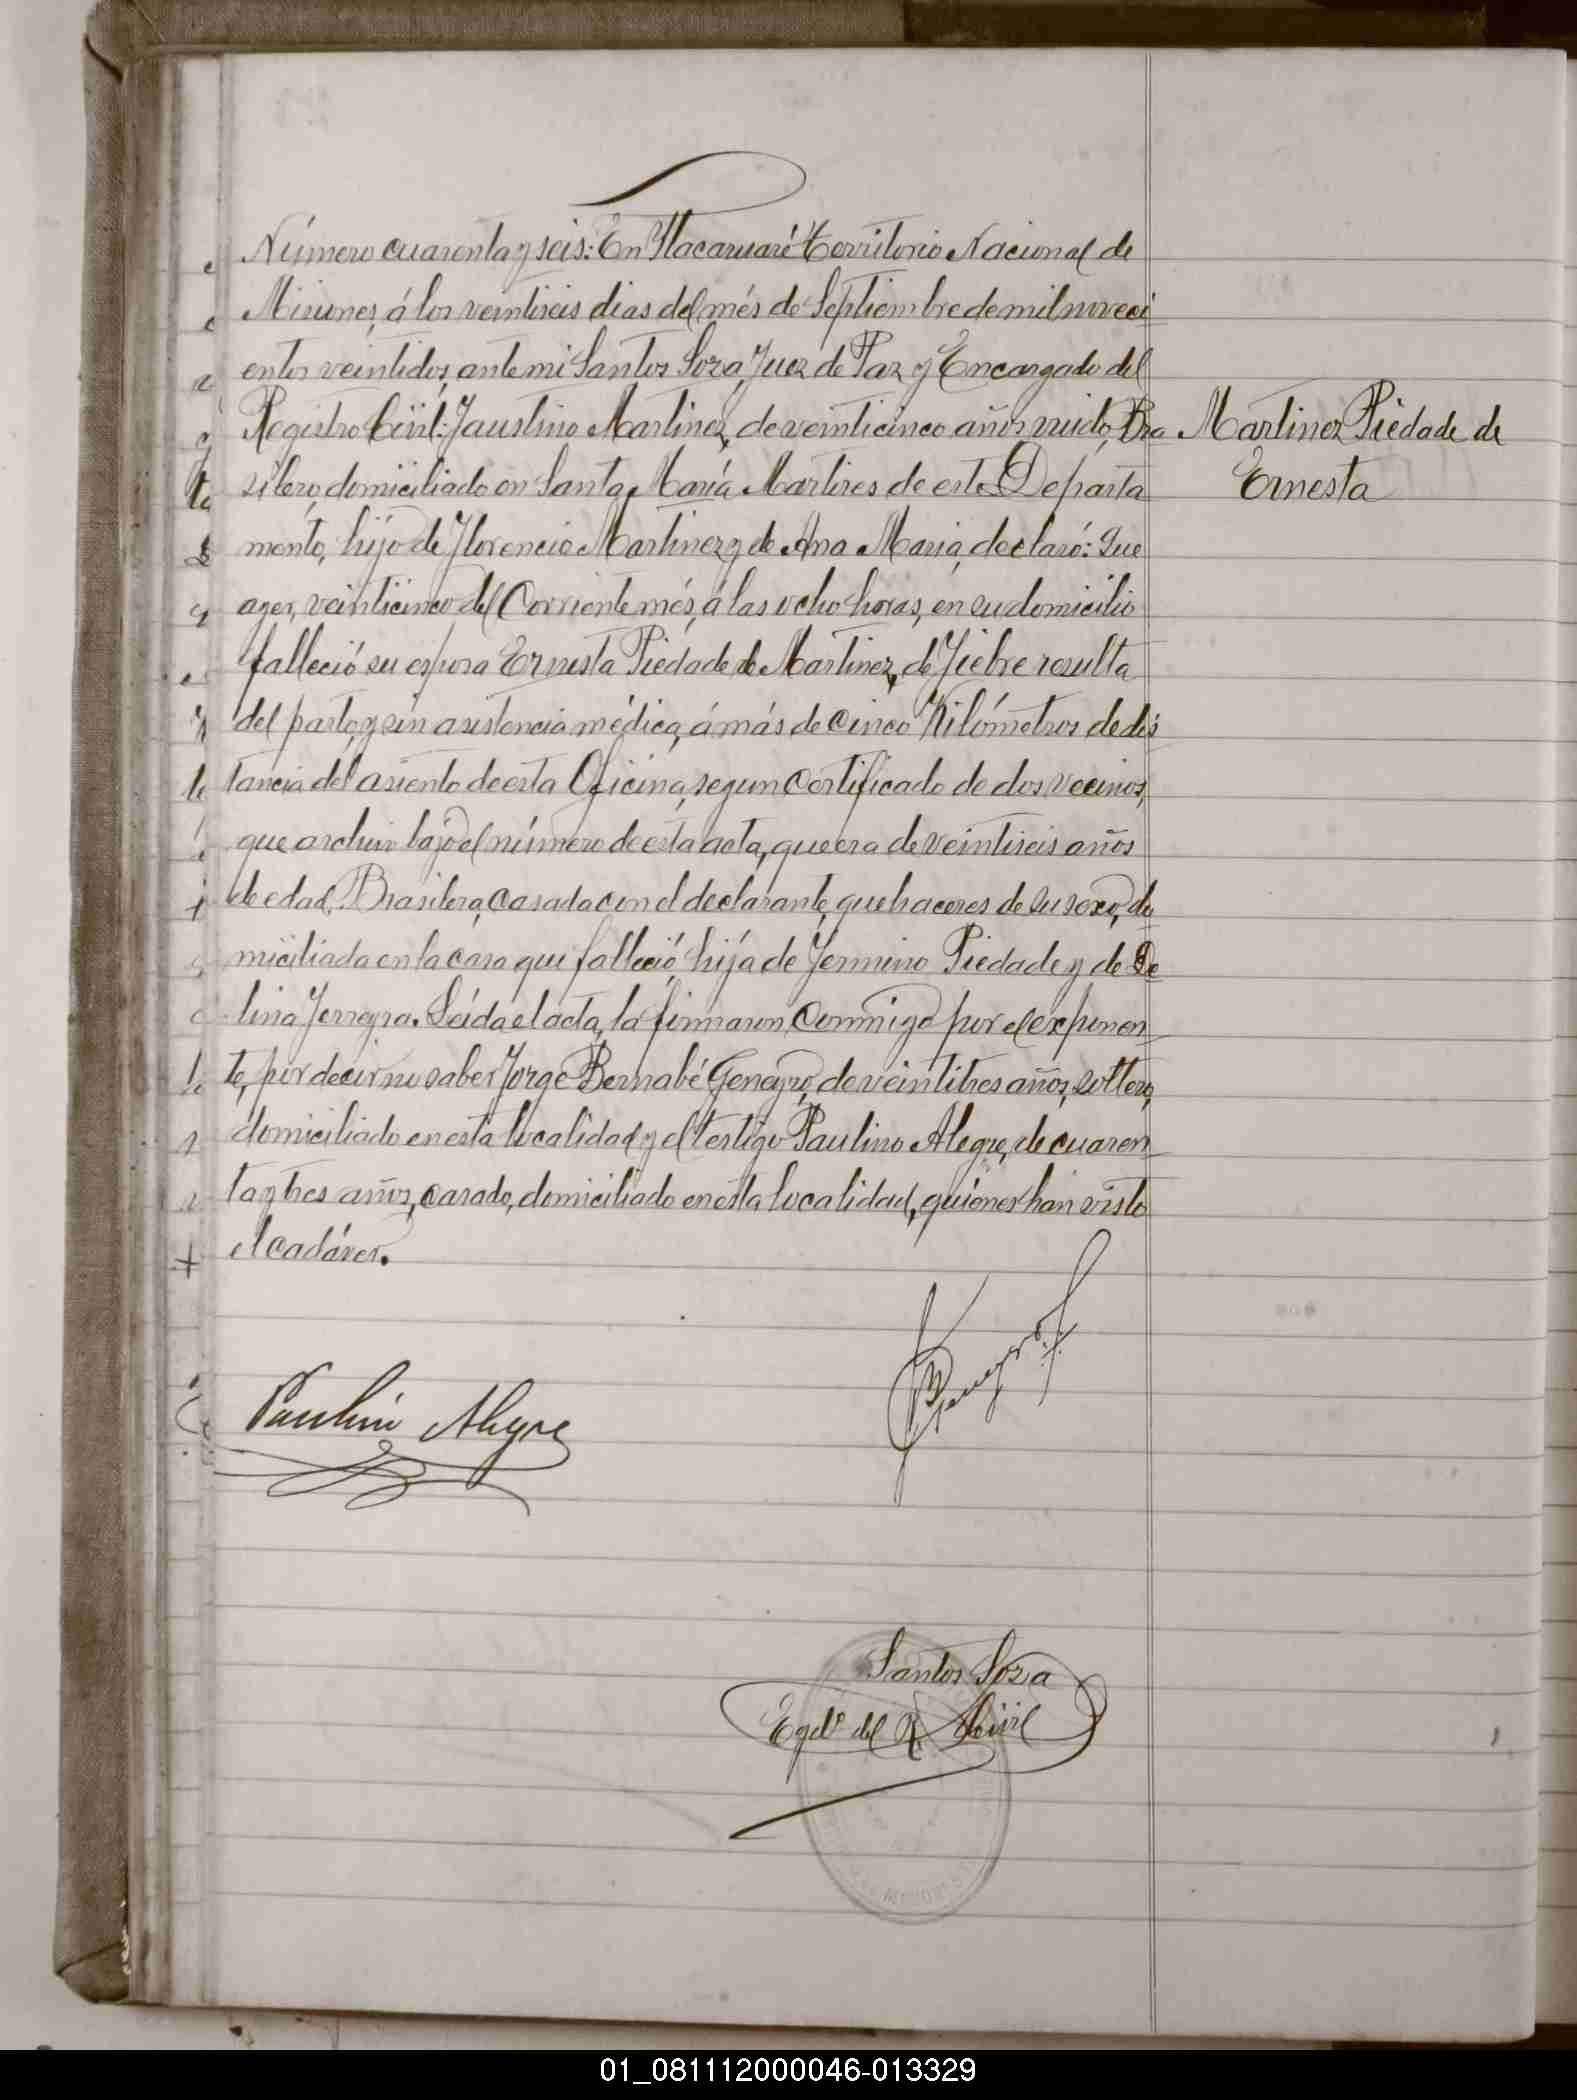 Número cuarenta y seis: En Itacaruaré Territorio Nacional de
Misiones, á los veintiseis dias del més de Septiembre de mil noveci
entos veintidos, ante mi Santos Soza, Juez de Paz y Encargado del
Registro Civil: Faustino Martinez, de veinticinco años, viudo, Bra
Martinez Piedade de
Ernesta
silero, domiciliado en Santa María Martires de este Departa
mento, hijo de Florencio Martinez y de Ana Maria, declaró: Que
ayer, veinticinco del Corriente més, á las ocho horas, en su domicilio
falleció su esposa Ernesta Piedade de Martinez, de Fiebre resulta
del parto, y sin asistencia médica, á más de cinco Kilómetros de dis
tancia del asiento de esta Oficina, segun certificado de dos vecinos,
que archivo bajo el número de esta acta, que era de veintiseis años
de edad, Brasilera, casada con el declarante, quehaceres de su sexo, do
miciliada en la casa que falleció, hija de Fermino Piedade y de De
lina Ferreyra. Leída el acta, la firmaron conmigo por el exponen
te, por decir no saber Jorge Bernabé Geneyro, de veintitres años, soltero,
domiciliado en esta localidad y el testigo Paulino Alegre, de cuaren
ta y tres años, casado, domiciliado en esta localidad, quiénes han visto
el cadáver.
Paulino Alegre
Santos Soza
Egdo del R. Civil
01_081112000046-013329